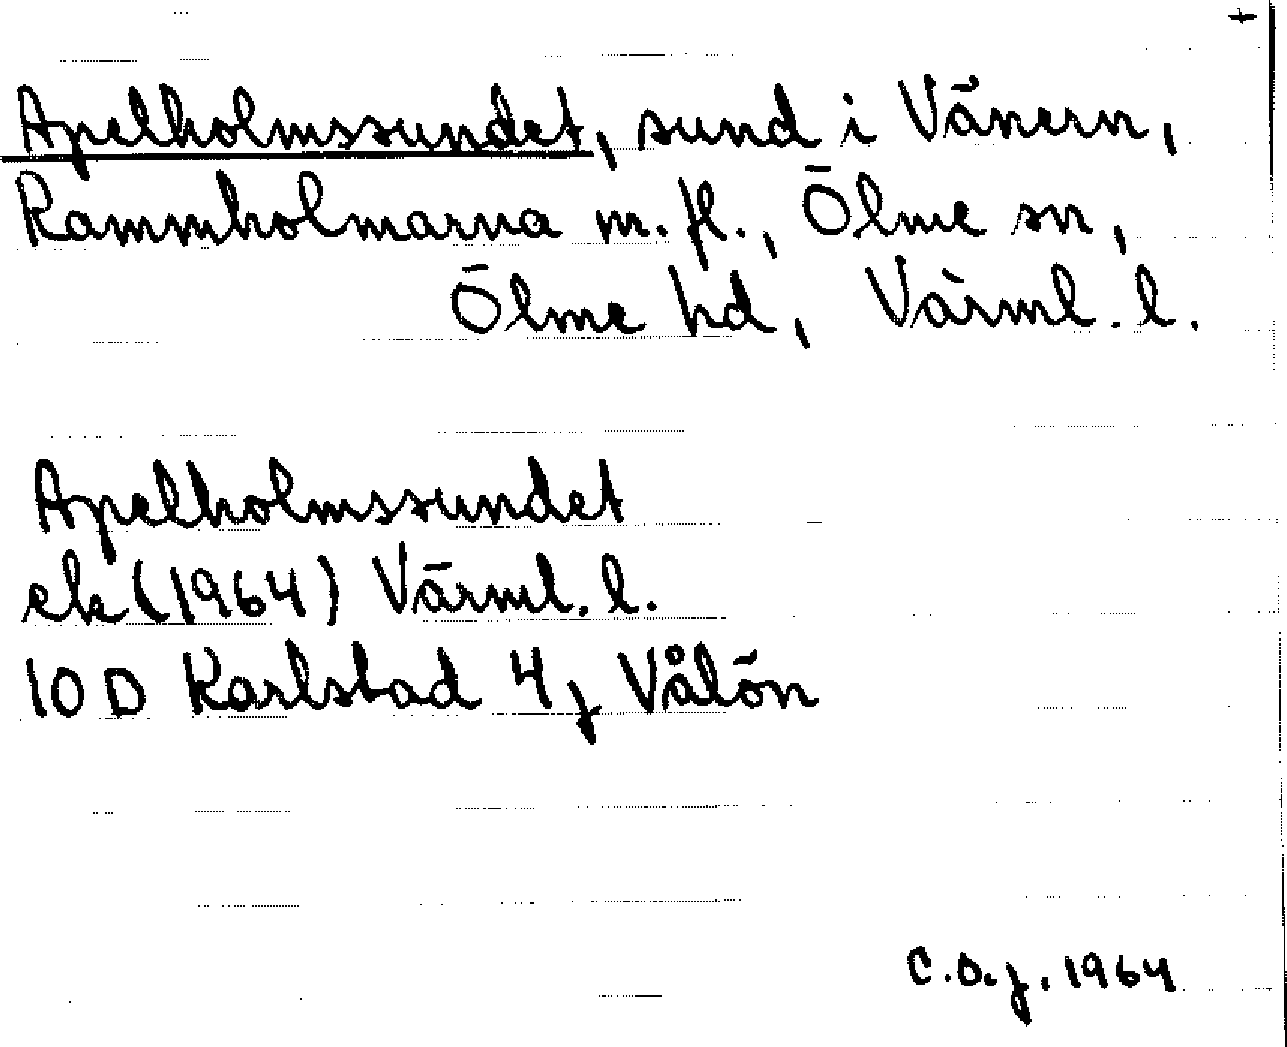 +
Apelholmssundet, sund i Vänern,
Rammholmarna m. fl., Ölme sn,
Ölme hd, Värml. l.
Apelholmssundet
ek (1964) Värml. l.
10 D Karlstad 4j Vålön
C.O.j. 1964